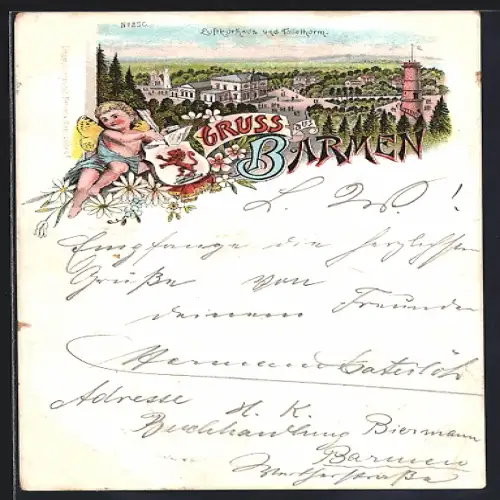 No 256
Luftkurhaus und Tölleturm.
GRUSS AUS
BARMEN
L. W. !
Empfange die herzlichsten
Grüße von
deinem Freunde
Hermann
Adresse H. K.
Buchhandlung Biermann
Barmen
Wertherstraße